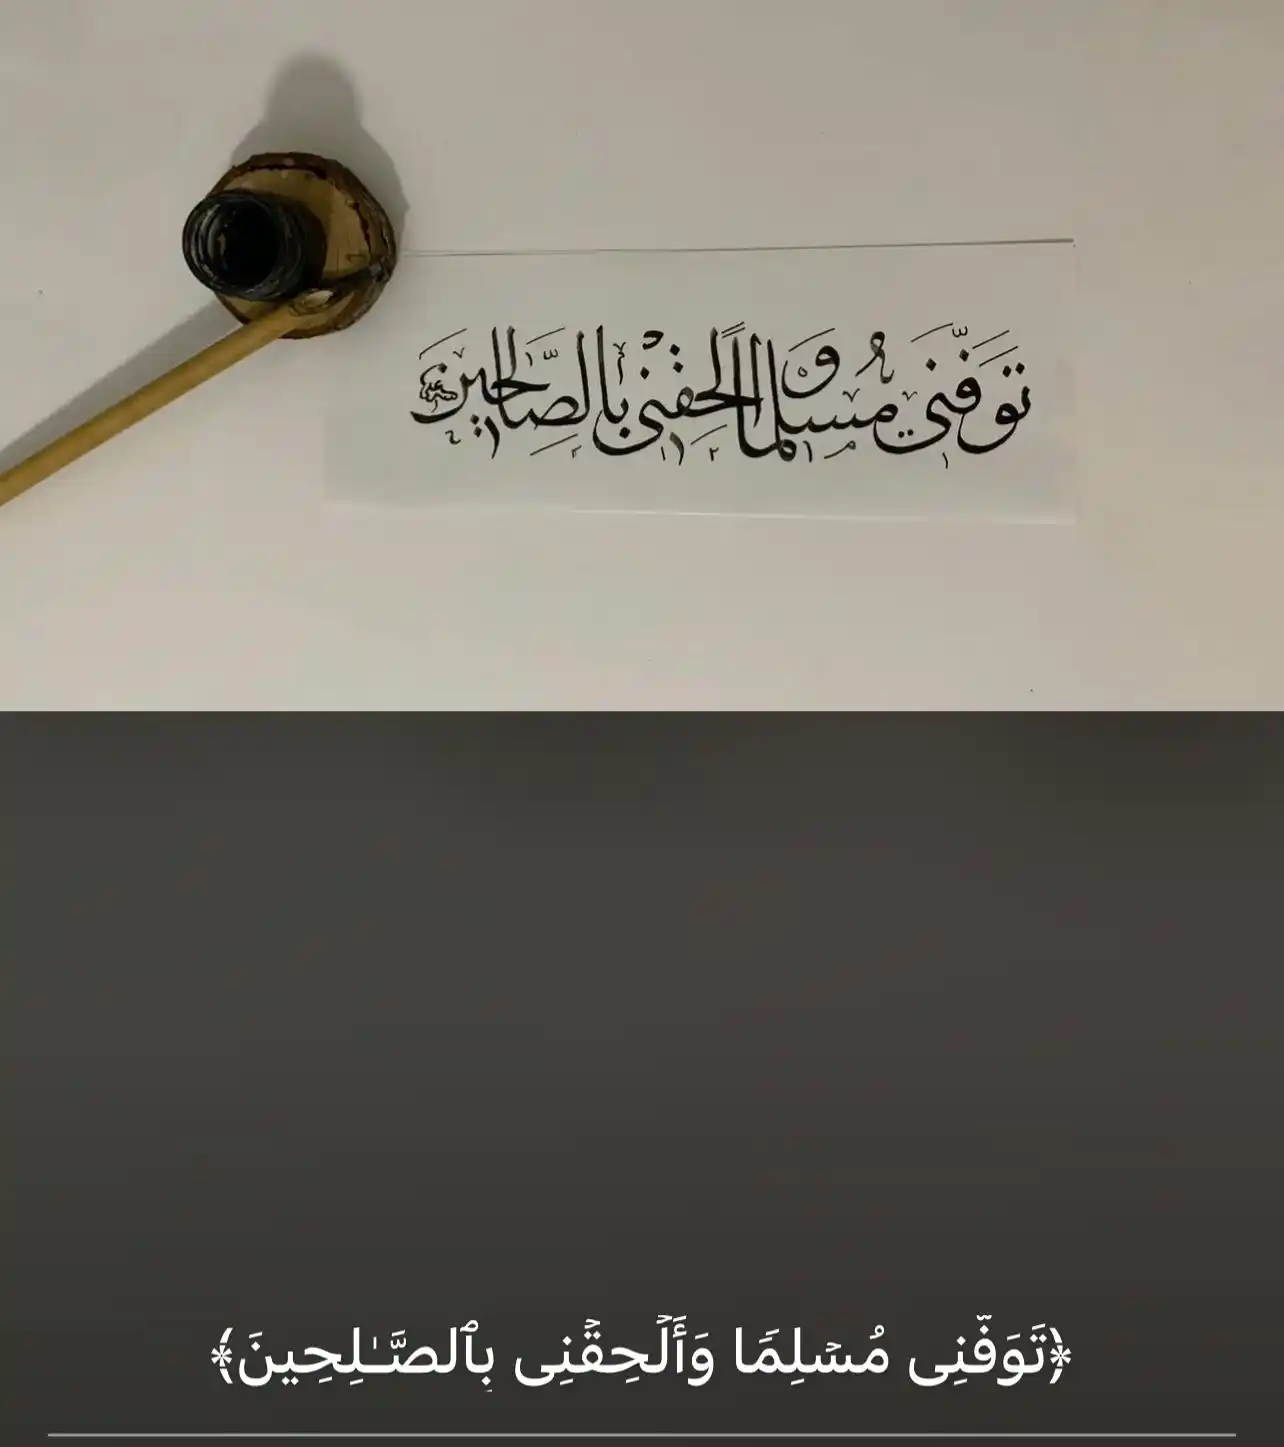 توفني مسلمًا وألحقني بالصالحين
﴿تَوَفَّنِی مُسۡلِمࣰا وَأَلۡحِقۡنِی بِٱلصَّـٰلِحِینَ﴾